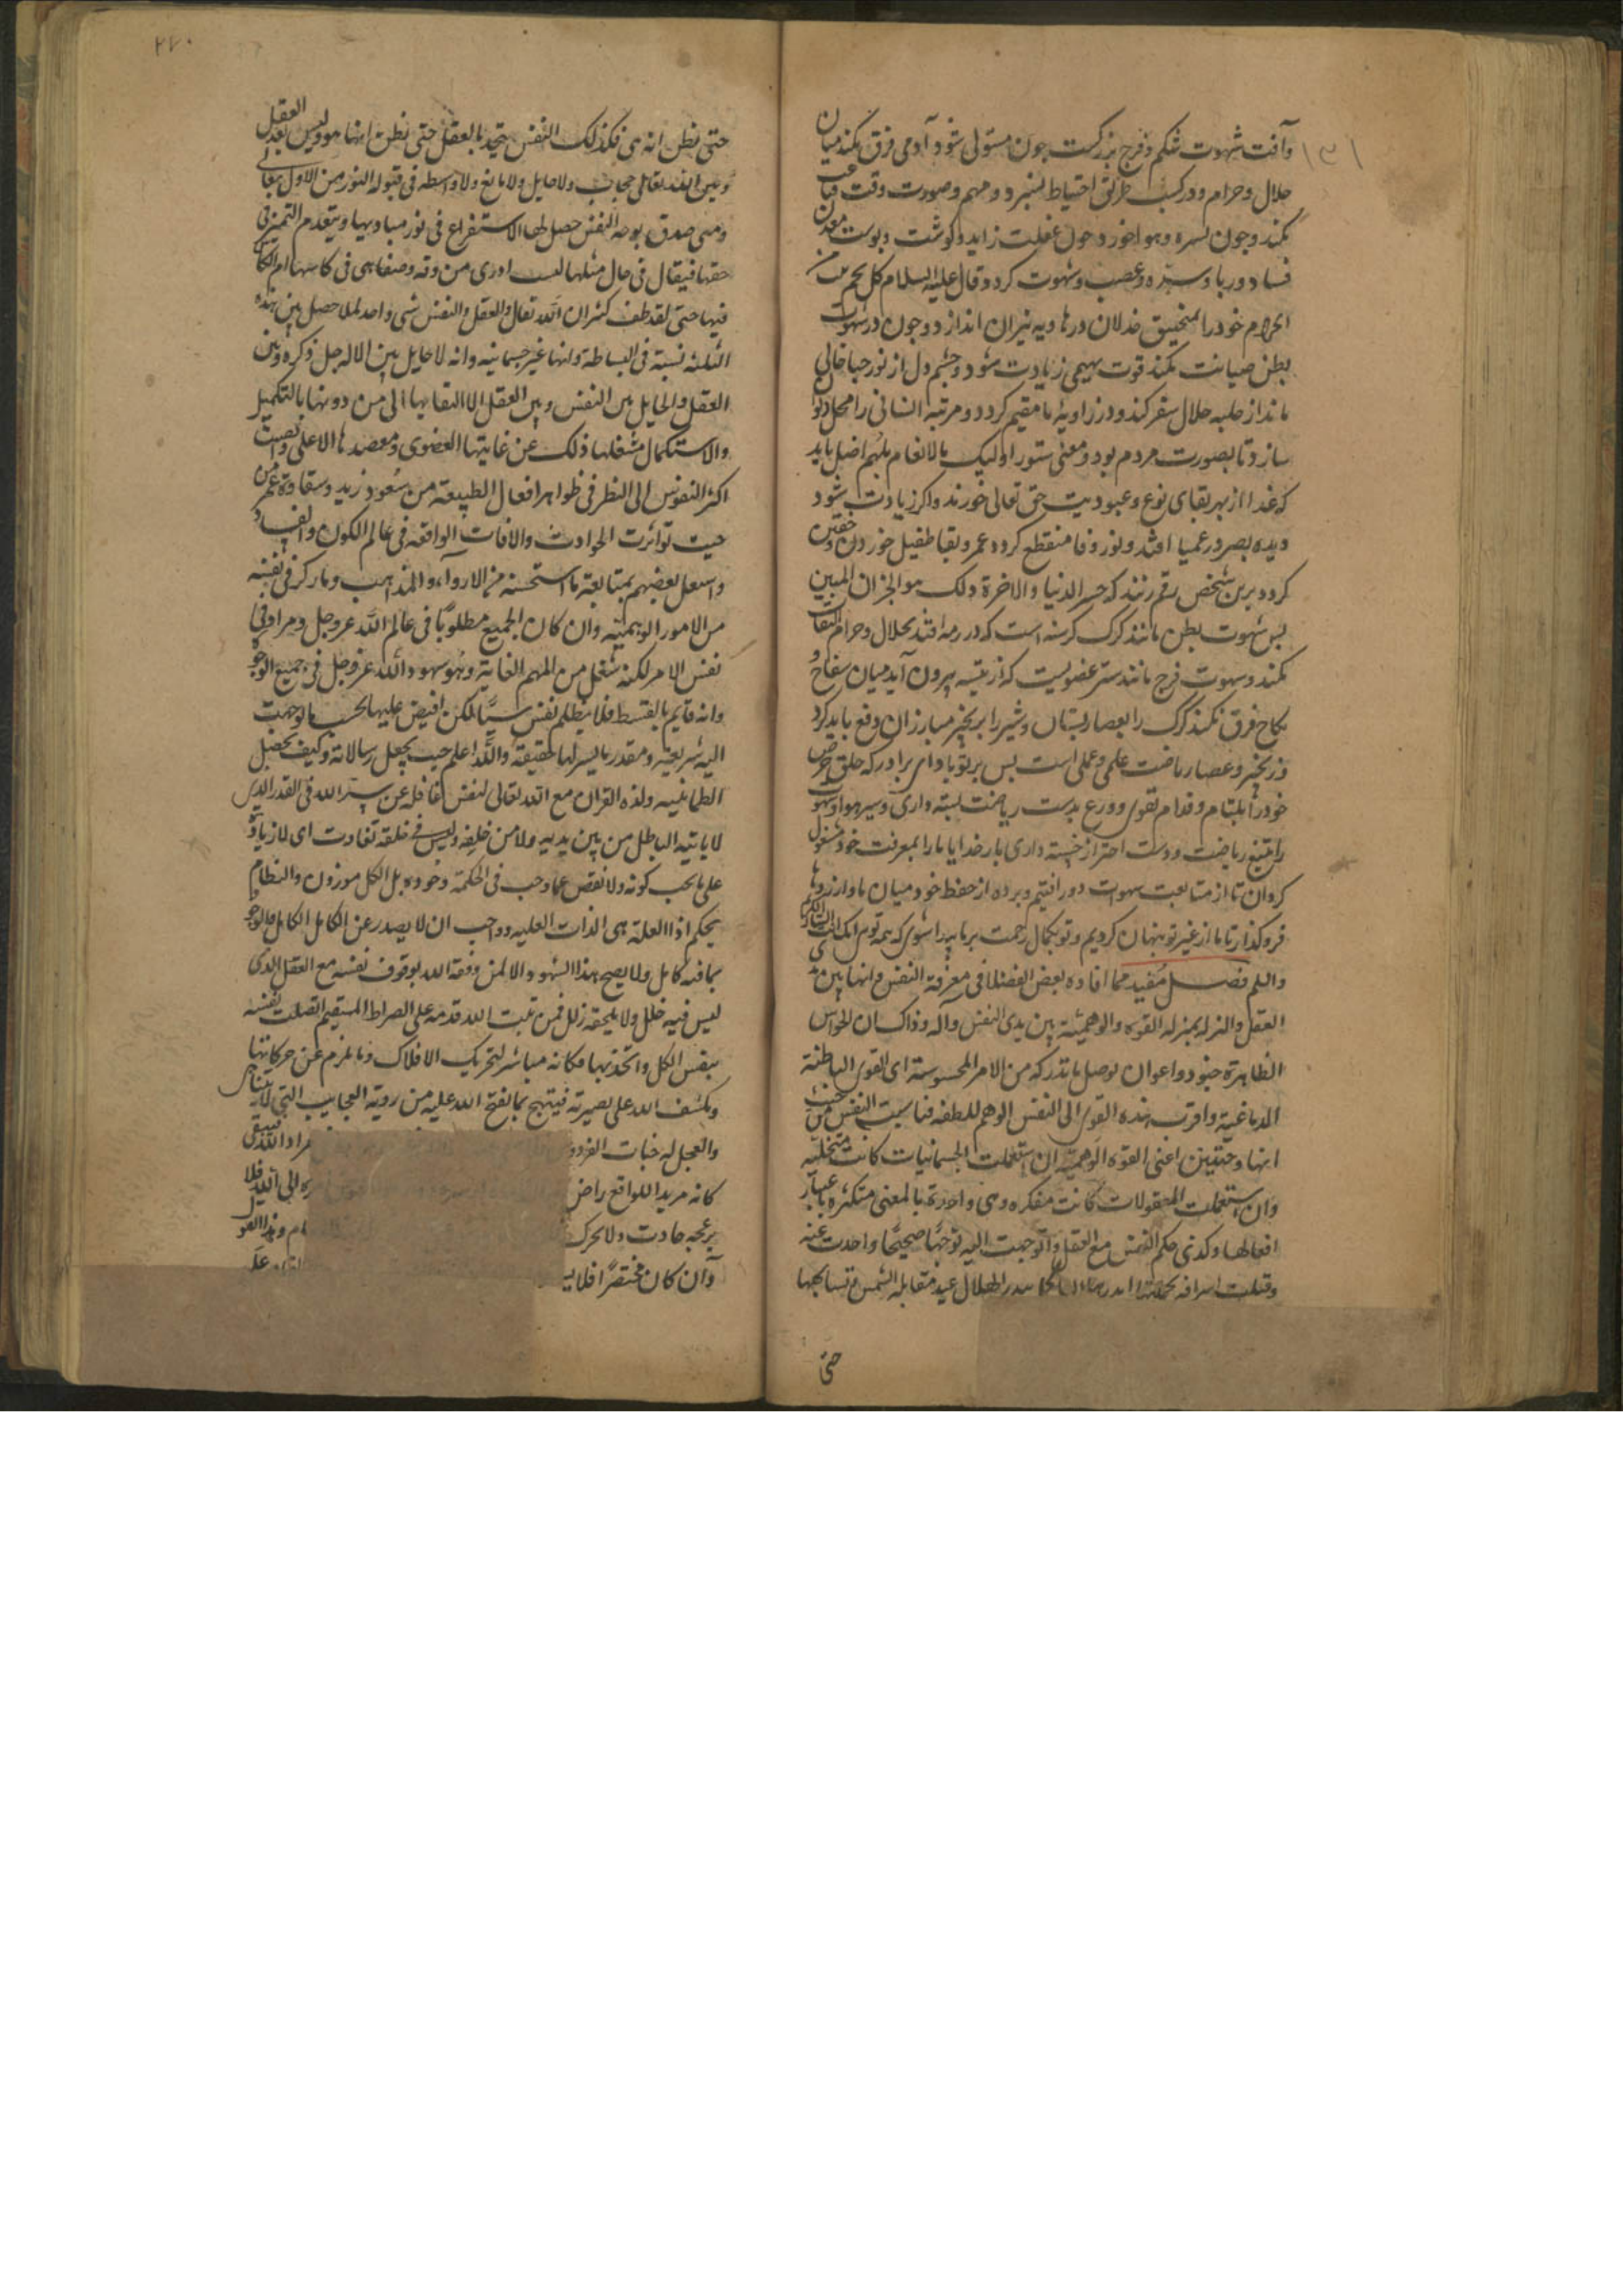 وآفت شهوت شکم و فرج بزرکست جون مستولی شود آدمی فرق نکند میان
حلال وحرام ودر کسب طریق احتیاط نسپرد ومهم وصورت وقت
نکند وجون بسره وهوا خورد جون غفلت زاید وکوشت وپوست معدن
فساد وریا و وغضب وشهوت کردد قال علیه السلام کل لحم نبت من
الحرام خودرا بمنجنیق خذلان درهاویه نیران اندازد وجون در شهوت
بطن صیانت نکند قوت بهیمی زیادت شود وچشم دل از نور حیا خالی
ماند از حلیه حلال سفر کند ودر زاویهٔ ما مقیم کردد ومرتبه انسانی را محل
سازد تا بصورت مردم بود ومعنی ستور اولیک کالانعام بلهم اضل باید
که غذا از بهر بقای نوع وعبودیت حق تعالی خورند واکر زیادت شود
دیده بصر در عمیا افتد ونور وفا منقطع کردد عمر وبقا طفیل خوردن وخفتن
کردد برین شخص رقم زنند که خسر الدنیا والاخرة ذلک هو الخسران المبین
پس شهوت بطن مانند کرک کرسنه است که در رمه افتد بحلال وحرام التفات
نکند وشهوت فرج مانند شیر عضویست که از بیشه بیرون آید میان سفاح و
نکاح فرق نکند کرک را بعصا ربستان وشیر را بزنجیر مبارزان دفع باید کرد
وزنجیر وعصا ریاضت علمی وعملی است پس بر تو باد ای برادر که حلق حرص
خودرا بلثام وفدام تقوی وورع بدست ریاضت بسته داری وسیر هوا وشهوت
را بتیغ ریاضت ودست احتراز خسته داری بار خدایا مارا بمعرفت خود مشغول
کردان تا از متابعت شهوت دور افتیم وپرده از حفظ خود میان ما وآرزوها
فروکذار تا ما از غیر تو پنهان کردیم وتو بکمال رحمت بر ما پیدا شوی که همه توی انک انت الستار الکریم
واللم فصل مفید مما افاده بعض الفضلا فی معرفة النفس وانها بین یدی
العقل والنزله بمنزله القوه والوهمیة بین یدی النفس وآله وذاک ان الحواس
الظاهرة جنود واعوان توصل ما تدرکه من الامر المحسوسة ای القوی الباطنة
الدماغیة واقرب هذه القوی الی النفس الوهم للطفه فناسبت النفس من حیث
انها وجنتین اعنی القوه الوهمیة ان استعملت الجسمانیات کانت متخیلة
وان استعملت المعقولات کانت مفکره وهی واحدة بالمعنی متکثره باعتبار
افعالها وکذی حکم النفس مع العقل وان توجهت الیه توجها صحیحا واخذت عنه
وقبلت اشراقه الهلال عند مقابلة الشمس
حتی
٢٧٠
حتی نظن انه هی فکذلک النفس یتحد بالعقل حتی نظن انها هو ولیس بعد العقل
وبین الله تعالی حجاب ولا حایل ولا مانع ولا واسطه فی قبوله النور من الاول تعالی
ومتی صدق توجه النفس حصل لها الاستغراق فی نور مبادیها ویتعدم التمیز فی
حقها فیقال فی حال مثلها لست ادری من رقه وصفا هی فی کاسها ام الکاس
فیها حتی لقد ظن کثیر ان الله تعالی والعقل والنفس شی واحد لما حصل بین هذه
الثلثة نسبة فی البساطة وانها غیر جسمانیه وانه لا حایل بین الاله جل ذکره وبین
العقل والحایل بین النفس وبین العقل الا التفاتها الی من دونها بالتکمیل
والاستکمال شغلها ذلک عن غایتها القصوی ومقصدها الاعلی
اکثر النفوس الی النظر فی ظواهر افعال الطبیعة من سعود زید وشقاوة عمر من
حیث تواترت الحوادث والافات الواقعه فی عالم الکون والفساد
واشتغل بعضهم بمتابعة ما استحسنه من الاراء والمذاهب وما رکز فی نفسه
من الامور الوهمیة وان کان الجمیع مطلوبا فی عالم الله عز وجل ومراد فی
نفس الامر لکنه شغل من المهم الغایة وهو شهود الله عز وجل فی جمیع الوجوه
وانه قایم بالقسط فلا یظلم نفس شیا لکن افیض علیها بحسب ما توجهت
الیه شریعة ومقدر ما یسر لها حقیقة والله اعلم حیث یجعل رسالاته وکیف تحصل
الطمانینه ولذه القران مع الله تعالی لنفس غافله عن سر الله فی القدر الذی
لا یاتیه الباطل من بین یدیه ولا من خلفه ولیس فی خلقه تفاوت ای لا زیادة
علی ما یجب کونه ولا نقص عما وجب فی الحکمة وجوده بل الکل موزون والنظام
یحکم اذا العلة هی الذات العلیه وواجب ان لا یصدر عن الکامل الا کامل فالوجود
بما فیه کامل ولا یصح هذا الشهود الا لمن وفقه الله بوقوف نفسه مع العقل الذی
لیس فیه خلل ولا یلحقه زلل فمن ثبت الله قدمه علی الصراط المستقیم اتصلت نفسه
بنفس الکل واتحد بها فکانه مباشر لتحریک الافلاک وما یلزم عن حرکاتها
وکشف الله علی بصیرته فیبتهج بما یفتح الله علیه من رویة العجایب التی لا یتناهی
والعجل له جنات الفردو مراد الله فیبقی
کانه مرید اللواقع راض ره الی الله فلا
یزعجه حادث ولا یحرک
وان کان مختصرا فلا